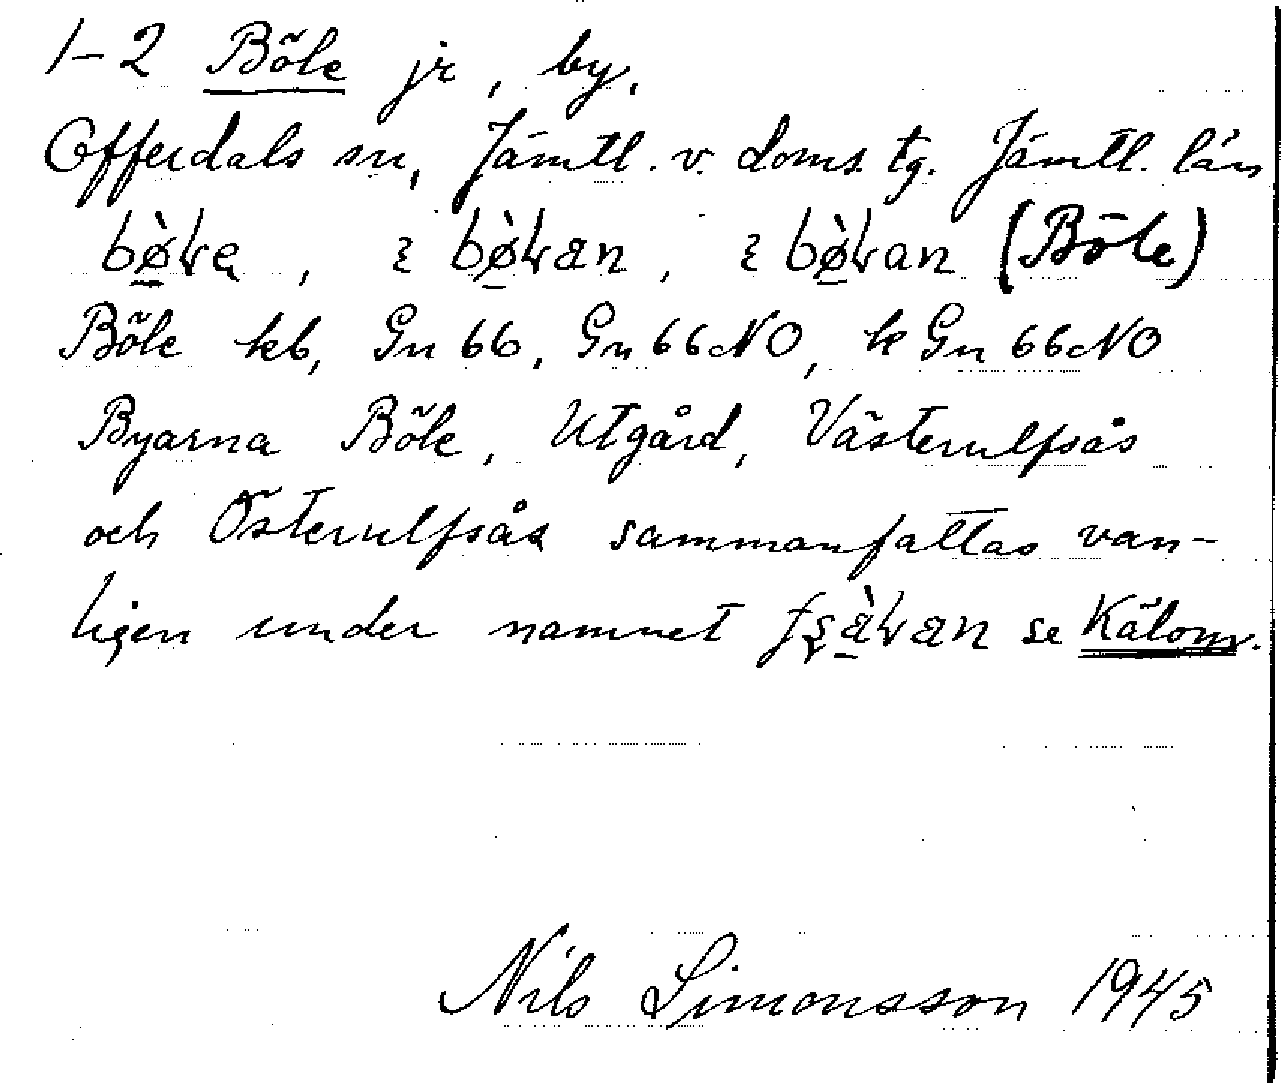 1-2 Böle jr, by.
Offerdals sn, Jämtl. v. doms. tg. Jämtl. län
(Böle)
Böle kb, Gn 66, Gn 66 NO, k Gn 66 NO
Byarna Böle, Utgård, Västerulfsås
och Österulfsås sammanfattas van-
ligen under namnet se Kälom.
Nils Simonsson 1945